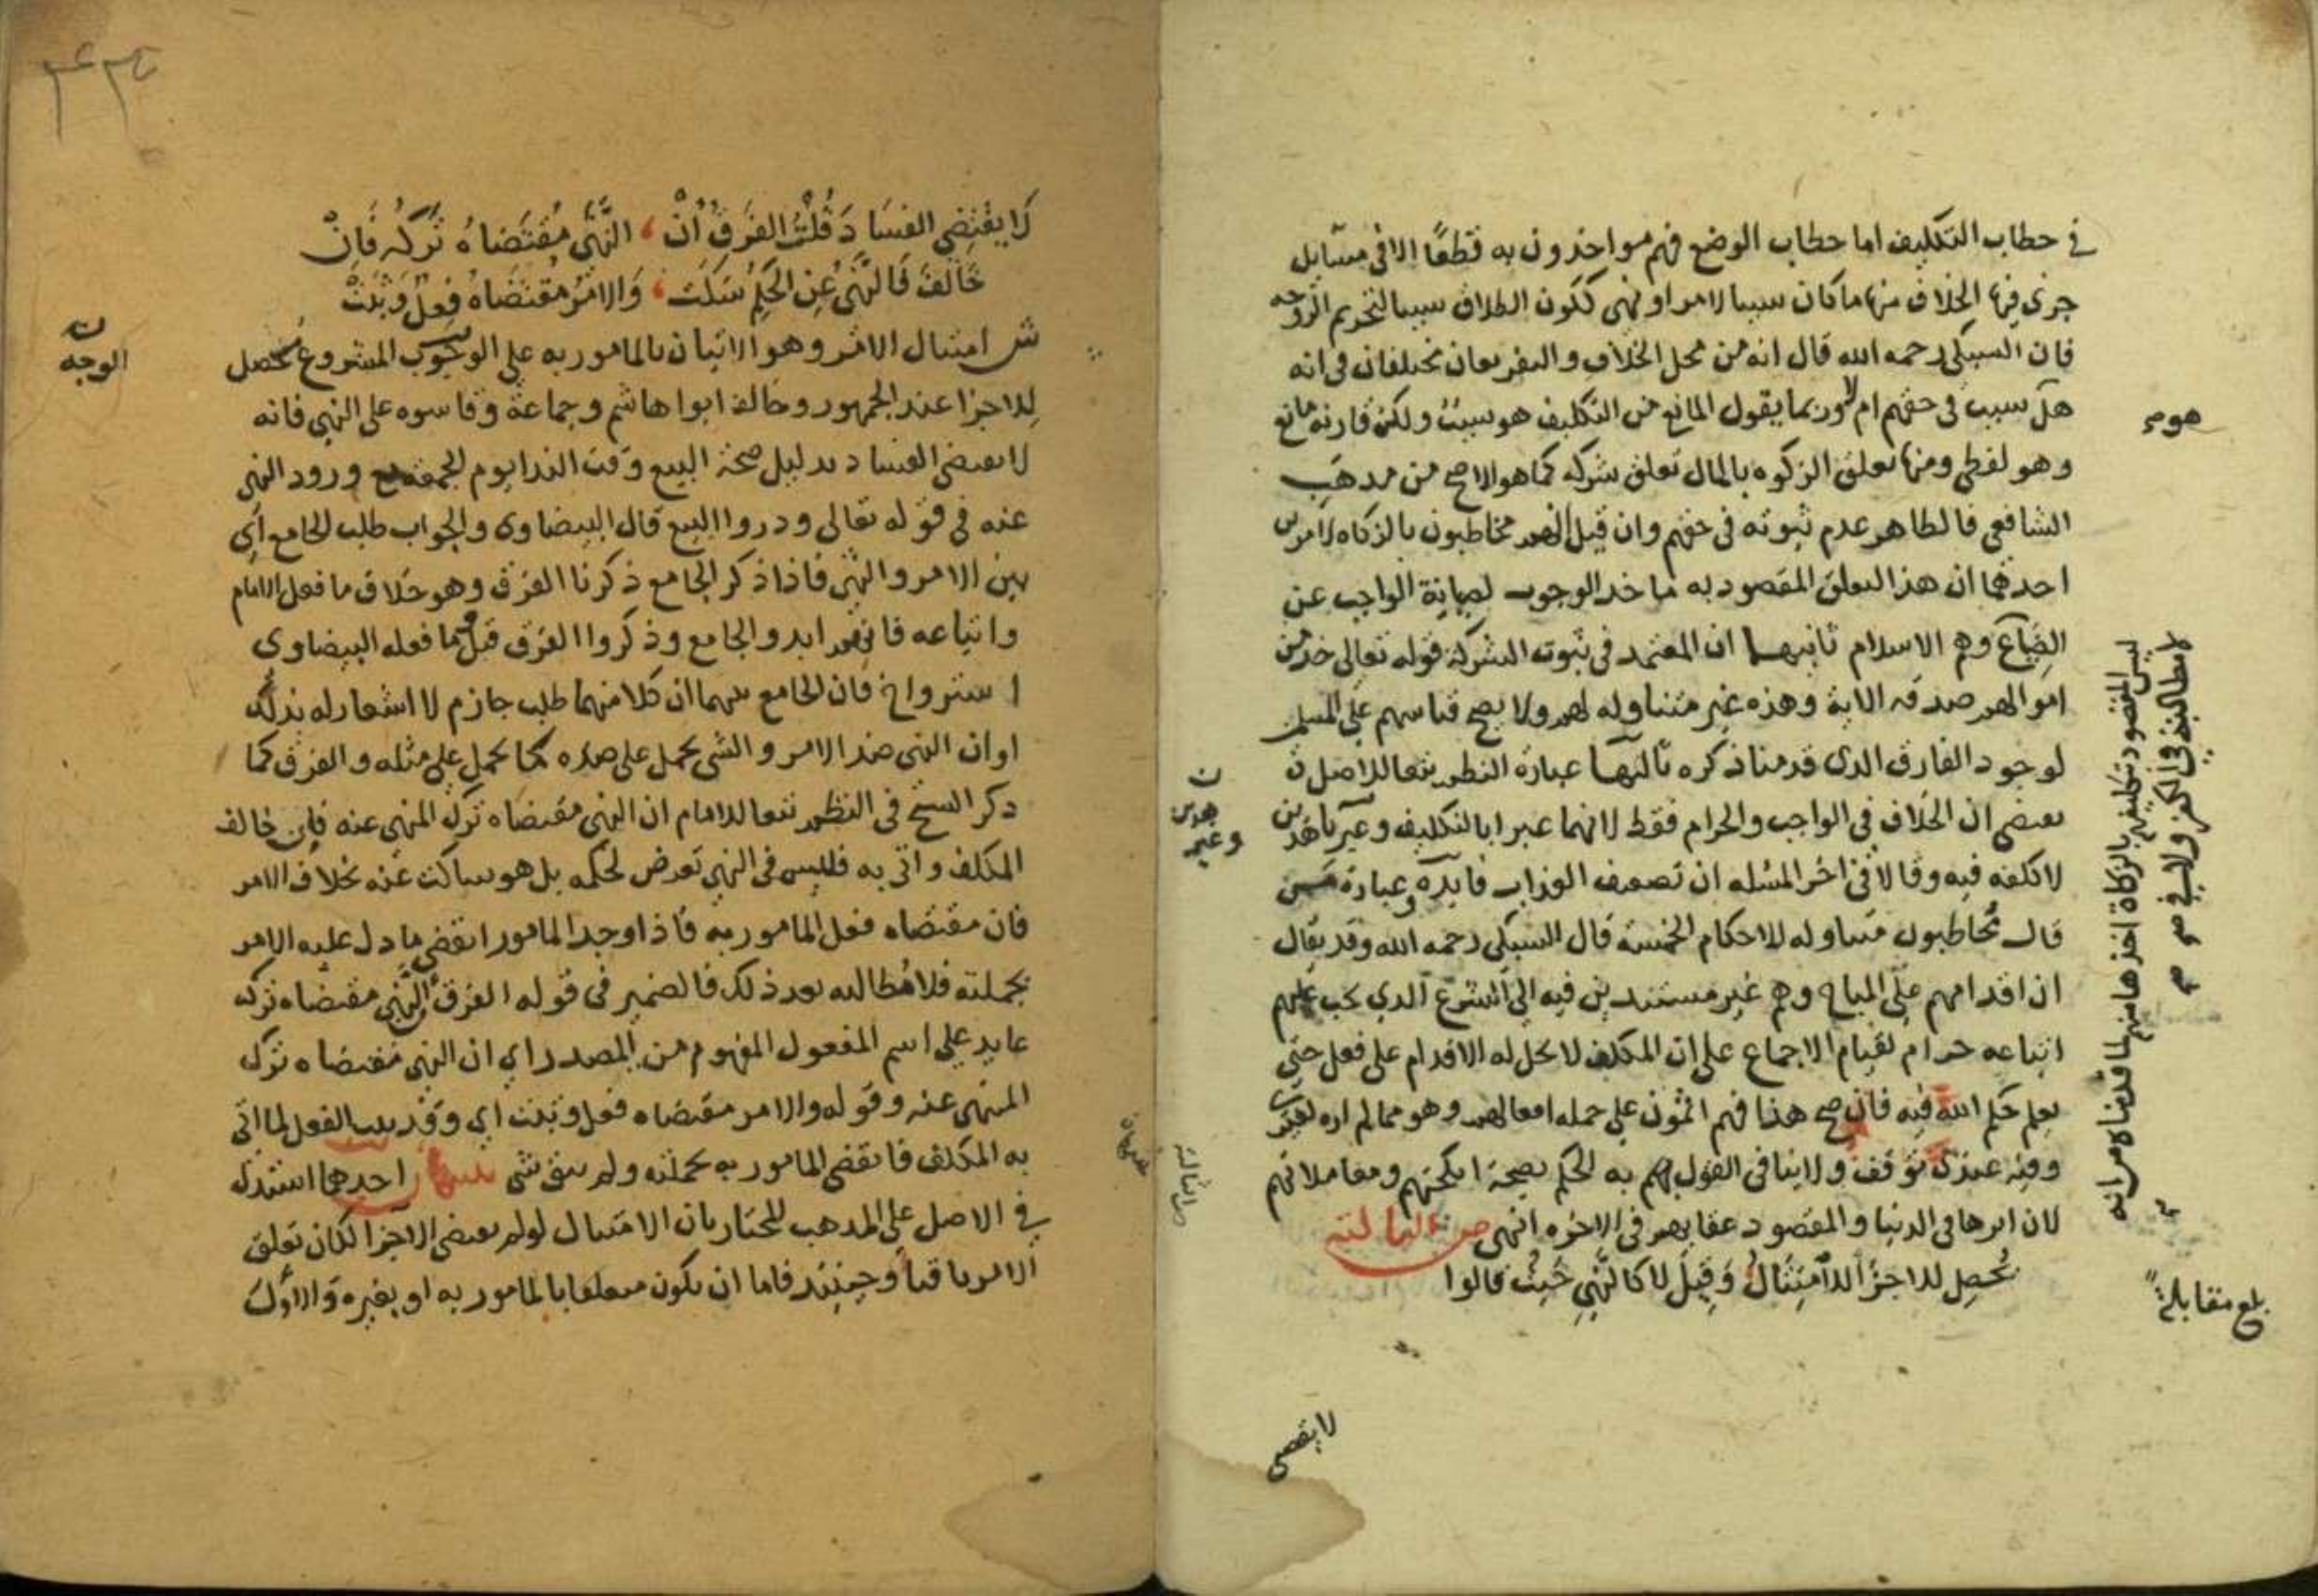 في خطاب التكليف اما خطاب الوضع فهم مواخذون به قطعًا الا في مسايل
جرى فيها الخلاف منها ما كان سببا لامر او نهى ككون الطلاق سببا لتحريم الزوجه
فان السبكي رحمه الله قال انه من محل الخلاف و الفريقان مختلفان في انه
هل سبب في حقهم ام لا وربما يقول المانع من التكليف هو سبب ولكن قارنه مانع
وهو لفظي ومنها تعلق الزكوه بالمال تعلق شركه كما هو الاصح من مذهب
الشافعي فالظاهر عدم ثبوته في حقهم وان قيل انهم مخاطبون بالزكاه لامرين
احدهما ان هذا التعلق المقصود به تاخد الوجوب لصيانة الواجب عن
الضياع وهم الاسلام ثانيهما ان المعتمد في ثبوت الشركة قوله تعالى خذ من
اموالهم صدقه الاية وهذه غير متناوله لهم ولا يصح قياسهم على المسلم
لوجود الفارق الدى قدمنا ذكره ثالثها عبارة النظم تبعا للاصل
تقتضي ان الخلاف في الواجب والحرام فقط لانهما عبرا بالتكليف وغير هذين
لا تكلفه فيه وقالا في اخر المسئله ان تضعيف العذاب فايده وعبارة من
قال مخاطبون متناوله للاحكام الخمسة قال السبكي رحمه الله وقد يقال
ان اقدامهم على المباح وهم غير مستندين فيه الى الشرع الذي يجب عليهم
اتباعه حرام لقيام الاجماع على ان المكلف لا يحل له الاقدام على فعل حتى
يعلم حكم الله فيه فان صح هذا فهم اثمون على جمله افعالهم وهو مما لم اره لغيرى
وفيه عندى توقف ولاينافى القول بهم به الحكم بصحة انكحتهم ومعاملاتهم
لان اثرها في الدنيا والمقصود عقابهم في الاخره انتهى ص الثالثه
تُحصِل للاجزَا الامتِثَالُ وَقِيلَ لا كالنَّهيِ حَيثُ قالوا
لا يقتضى
هو صح
ن
هدين
وغير
ليس المقصود تكليفهم بالزكاة اخذها منهم لما قدمناه من انه
لا مطالبة في الكفر ولا صح
بلغ مقابلة
لَا يقْتضِي الفسَادَ قُلْتُ الفَرقُ أنْ ، النَّهْى مُقتَضاهُ تَركُهُ فَإنْ
خَالَفَ فَالنَّهىُ عَنِ الحكمِ سَكَتَ ، وَالامرُ مقتضَاهُ فِعلٌ وَثبَتْ
ش امتثال الامر وهو الاتيان بالمامور به على الوجوب المشروع محصل
للاجزا عند الجمهور وخالف ابوا هاشم وجماعة وقاسوه على النهى فانه
لا يقتضى الفساد بدليل صحة البيع وقت الندا يوم الجمعة مع ورود النهى
عنه في قوله تعالى ودروا البيع قال البيضاوى والجواب طلب الجامع اي
بين الامر والنهى فاذا ذكر الجامع ذكرنا الفرق وهو خلاف ما فعل الامام
واتباعه فانهم ابدوا الجامع وذكروا الفرق قبل وما فعله البيضاوى
فان الجامع بينهما ان كلا منهما طلب جازم لا اشعار له بذلك
او ان النهى ضد الامر والشى يحمل على ضده كما يحمل على مثله والفرق كما
ذكر الشيخ في النظم تبعا للامام ان النهى مقتضاه ترك المنهى عنه فان خالف
المكلف واتى به فليس في النهى تعرض لحكمه بل هو ساكت عنه بخلاف الامر
فان مقتضاه فعل المامور به فاذا وجد المامور انقضى ما دل عليه الامر
بجملته فلا مطالبه بعد ذلك فالضمير في قوله الفرق ان النهى مقتضاه تركه
عايد على اسم المفعول المفهوم من المصدر اي ان النهى مقتضاه ترك
المنهى عنه وقوله والامر مقتضاه فعل وثبت اي وقد ثبت الفعل لما اتى
به المكلف فانقضى المامور به بجملته ولم يبق شى تنبيهان احدهما استدل
في الاصل على المذهب المختار بان الامتثال لو لم يقتضى الاجزا لكان تعلق
الامر باقيا وحينئذ فاما ان يكون متعلقا بالمامور به او بغيره والاول
ن
الوجه
تنبيهان
ص الثالثة